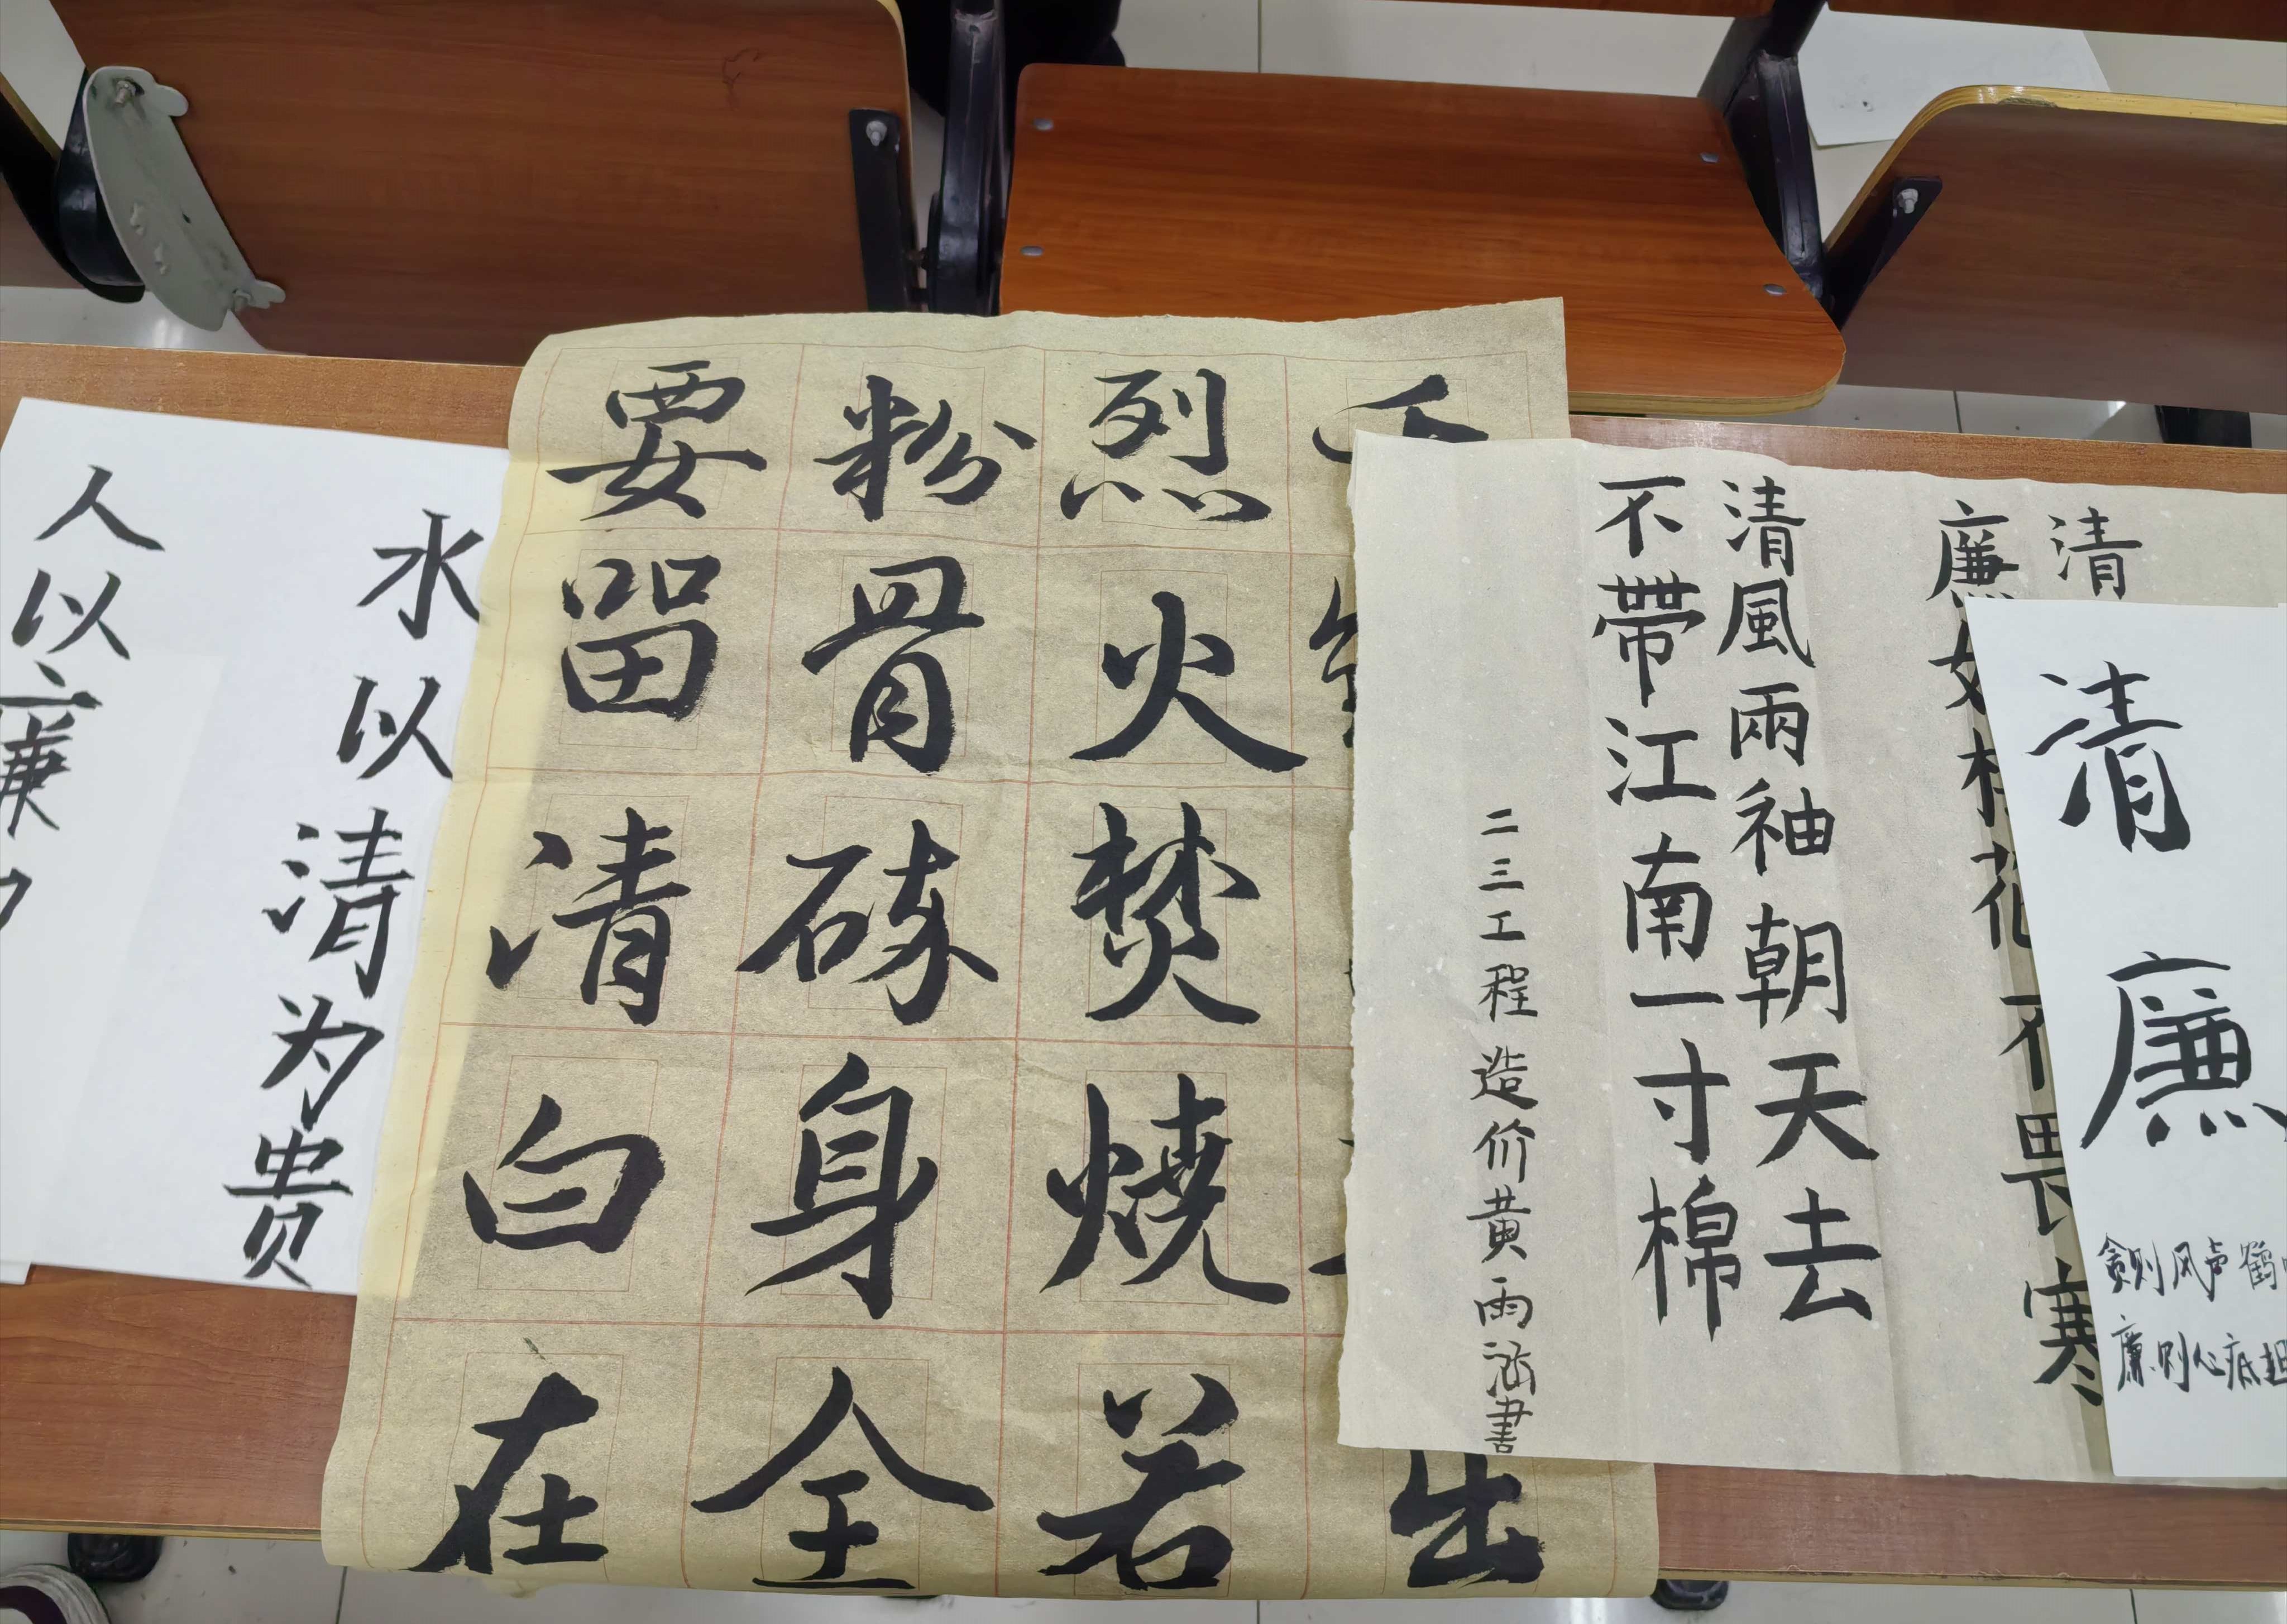 清
廉
劍则风声鹤
廉则心底坦
清
廉如梅花不畏寒
清風兩袖朝天去
不帶江南一寸棉
二三工程造价黄雨涵書
千
出
烈火焚燒若
粉骨碎身全
要留清白在
水以清为贵
人以廉